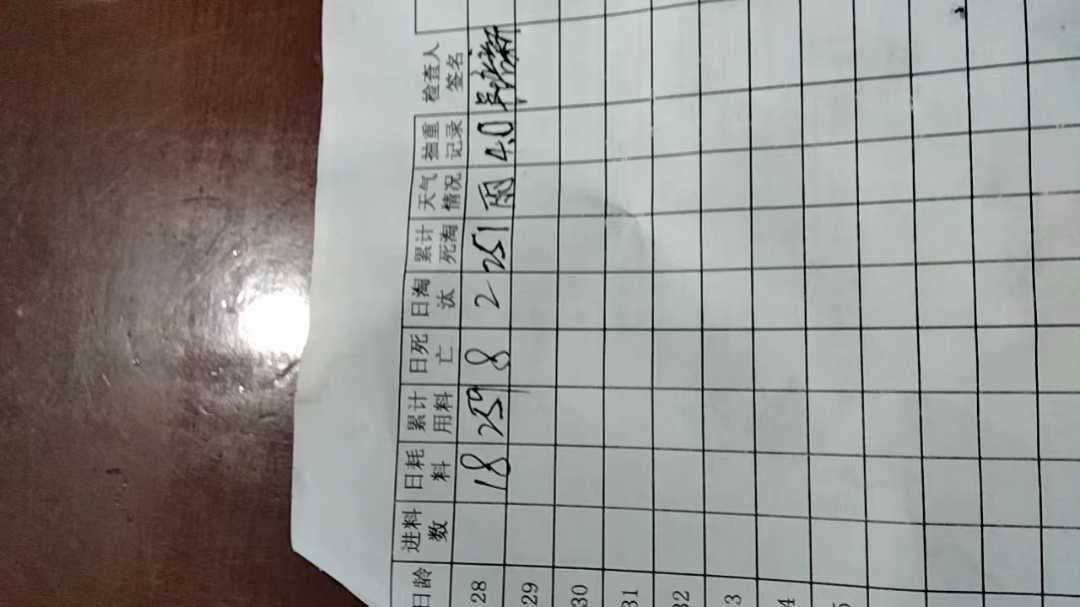 日龄 进料数 日耗料 累计用料 日死亡 日淘汰 累计死淘 天气情况 抽重记录 检查人签名
28 18 259 8 2 251 雨 4.0
29
30
31
32
3
4
5